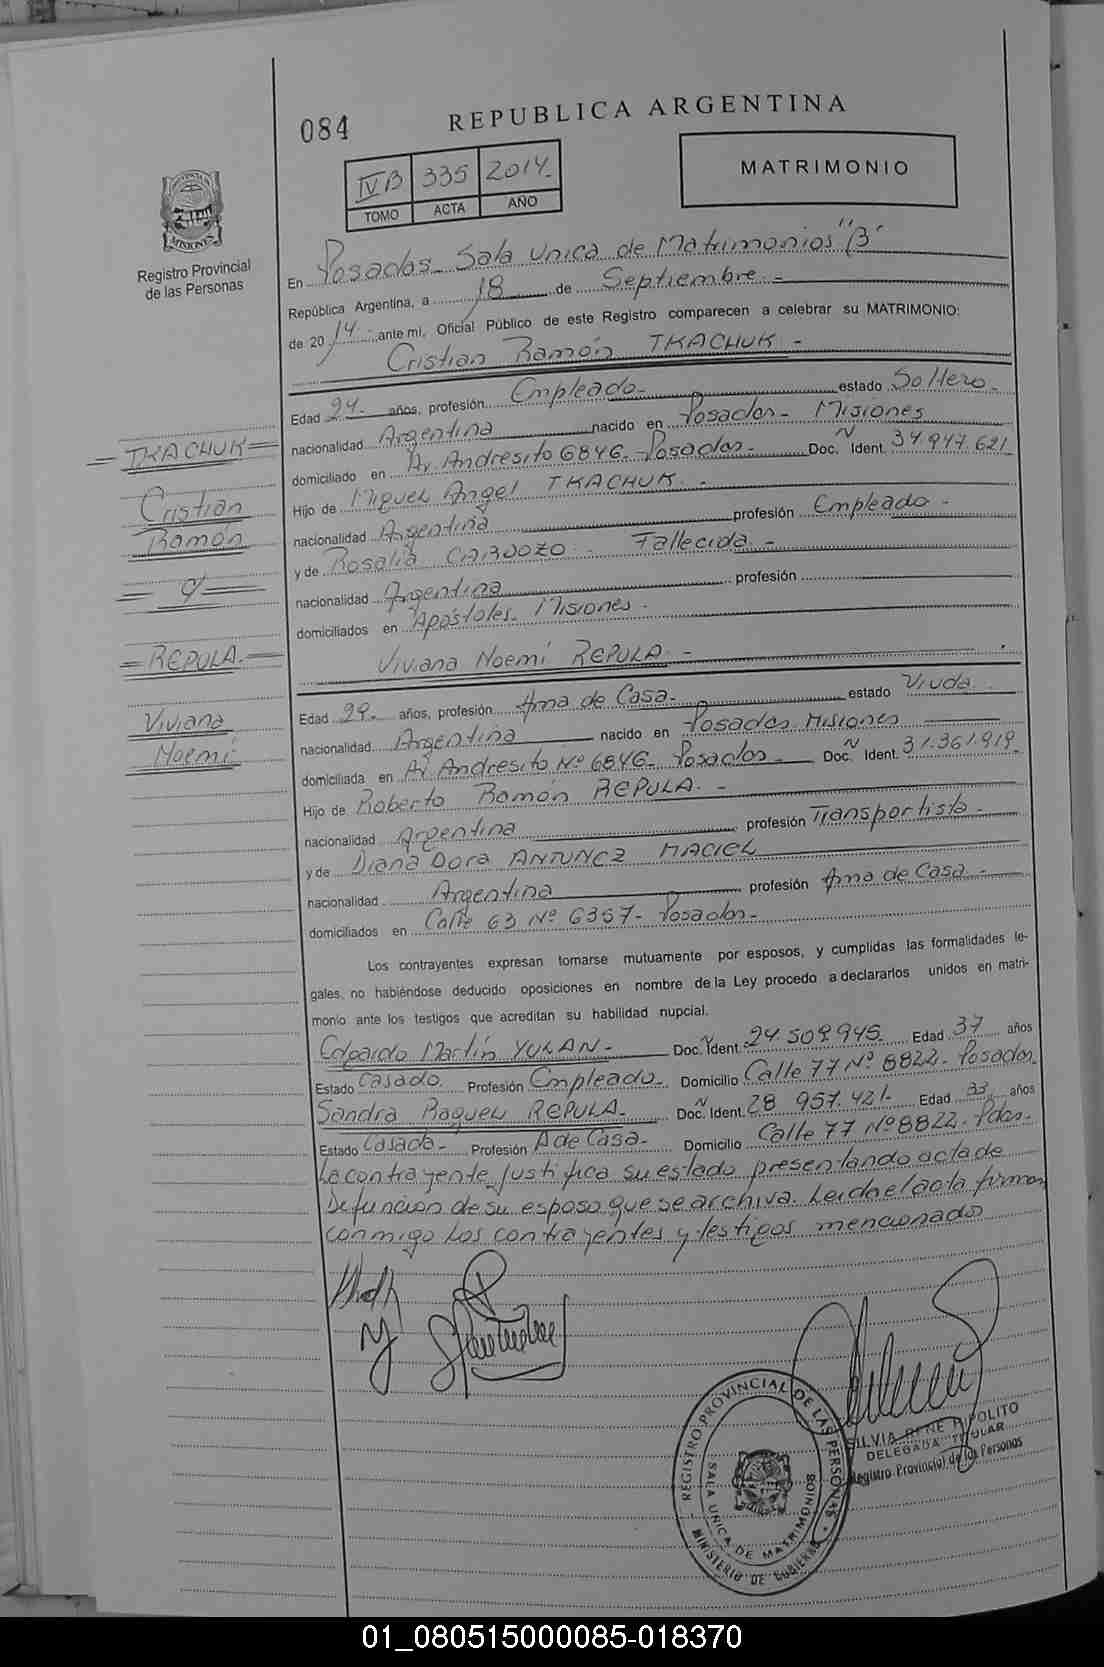 084
REPUBLICA ARGENTINA
IVB 335 2014-
TOMO ACTA AÑO
MATRIMONIO
MISIONES
Registro Provincial
de las Personas
En Posadas- Sala Unica de Matrimonios "B"
República Argentina, a 18 de Septiembre.-
de 2014.- ante mi, Oficial Público de este Registro comparecen a celebrar su MATRIMONIO:
Cristian Ramón TKACHUK -
Edad 24- años, profesión Empleado- estado Soltero-
nacionalidad Argentina nacido en Posadas- Misiones
domiciliado en Av. Andresito 6846- Posadas- Doc. N Ident. 34.947.621
Hijo de Miguel Angel TKACHUK.-
nacionalidad Argentina profesión Empleado-
y de Rosalia CARDOZO.- Fallecida.-
nacionalidad Argentina profesión
domiciliados en Apóstoles- Misiones.
=TKACHUK=
Cristian
Ramón
= y =
=REPULA.=
Viviana
Noemi
Viviana Noemi REPULA.-
Edad 29- años, profesión Ama de Casa- estado Viuda
nacionalidad Argentina nacido en Posadas Misiones
domiciliada en Av Andresito Nº 6846- Posadas- Doc. N Ident. 31.361.919-
Hijo de Roberto Ramón REPULA.-
nacionalidad Argentina profesión Transportista-
y de Diana Dora ANTUNEZ MACIEL
nacionalidad Argentina profesión Ama de Casa-
domiciliados en Calle 63 Nº 6357- Posadas-
Los contrayentes expresan tomarse mutuamente por esposos, y cumplidas las formalidades le-
gales, no habiéndose deducido oposiciones en nombre de la Ley procedo a declararlos unidos en matri-
monio ante los testigos que acreditan su habilidad nupcial.
Edgardo Martín YULAN- Doc. N Ident. 24.509.945- Edad 37 años
Estado Casado. Profesión Empleado- Domicilio Calle 77 Nº 8822- Posadas-
Sandra Raquel REPULA- Doc. N Ident. 28 957.421- Edad 33 años
Estado Casada- Profesión A de Casa- Domicilio Calle 77 Nº 8822- Pdas-
La contrayente justifica su estado presentando acta de
Defuncion de su esposo que se archiva. Leida el acta firman
conmigo Los contrayentes y testigos mencionado
REGISTRO PROVINCIAL DE LAS PERSONAS
SALA UNICA DE MATRIMONIOS
MINISTERIO DE GOBIERNO
SILVIA RENE HIPOLITO
DELEGADA TITULAR
Registro Provincial de las Personas
01_080515000085-018370